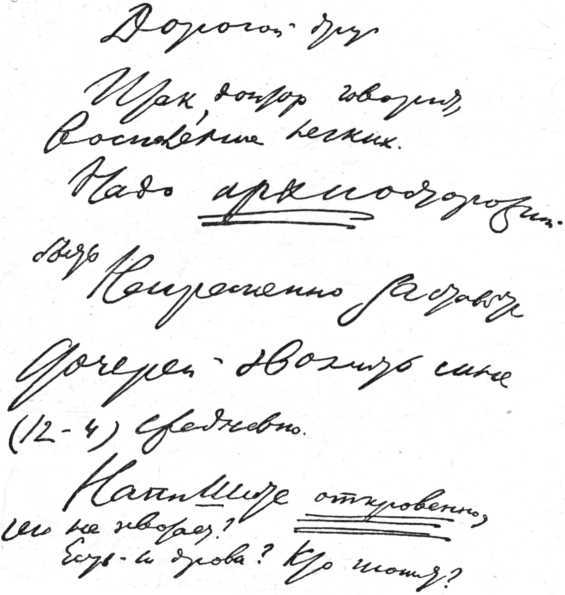 Дорогой друг
Итак, доктор говорит,
воспаление легких.
Надо архиосторожным
быть
Непременно заставьте
дочерей звонить мне
(12-4) ежедневно.
Напишите откровенно,
чего не хватает?
Есть ли дрова? Кто топит?